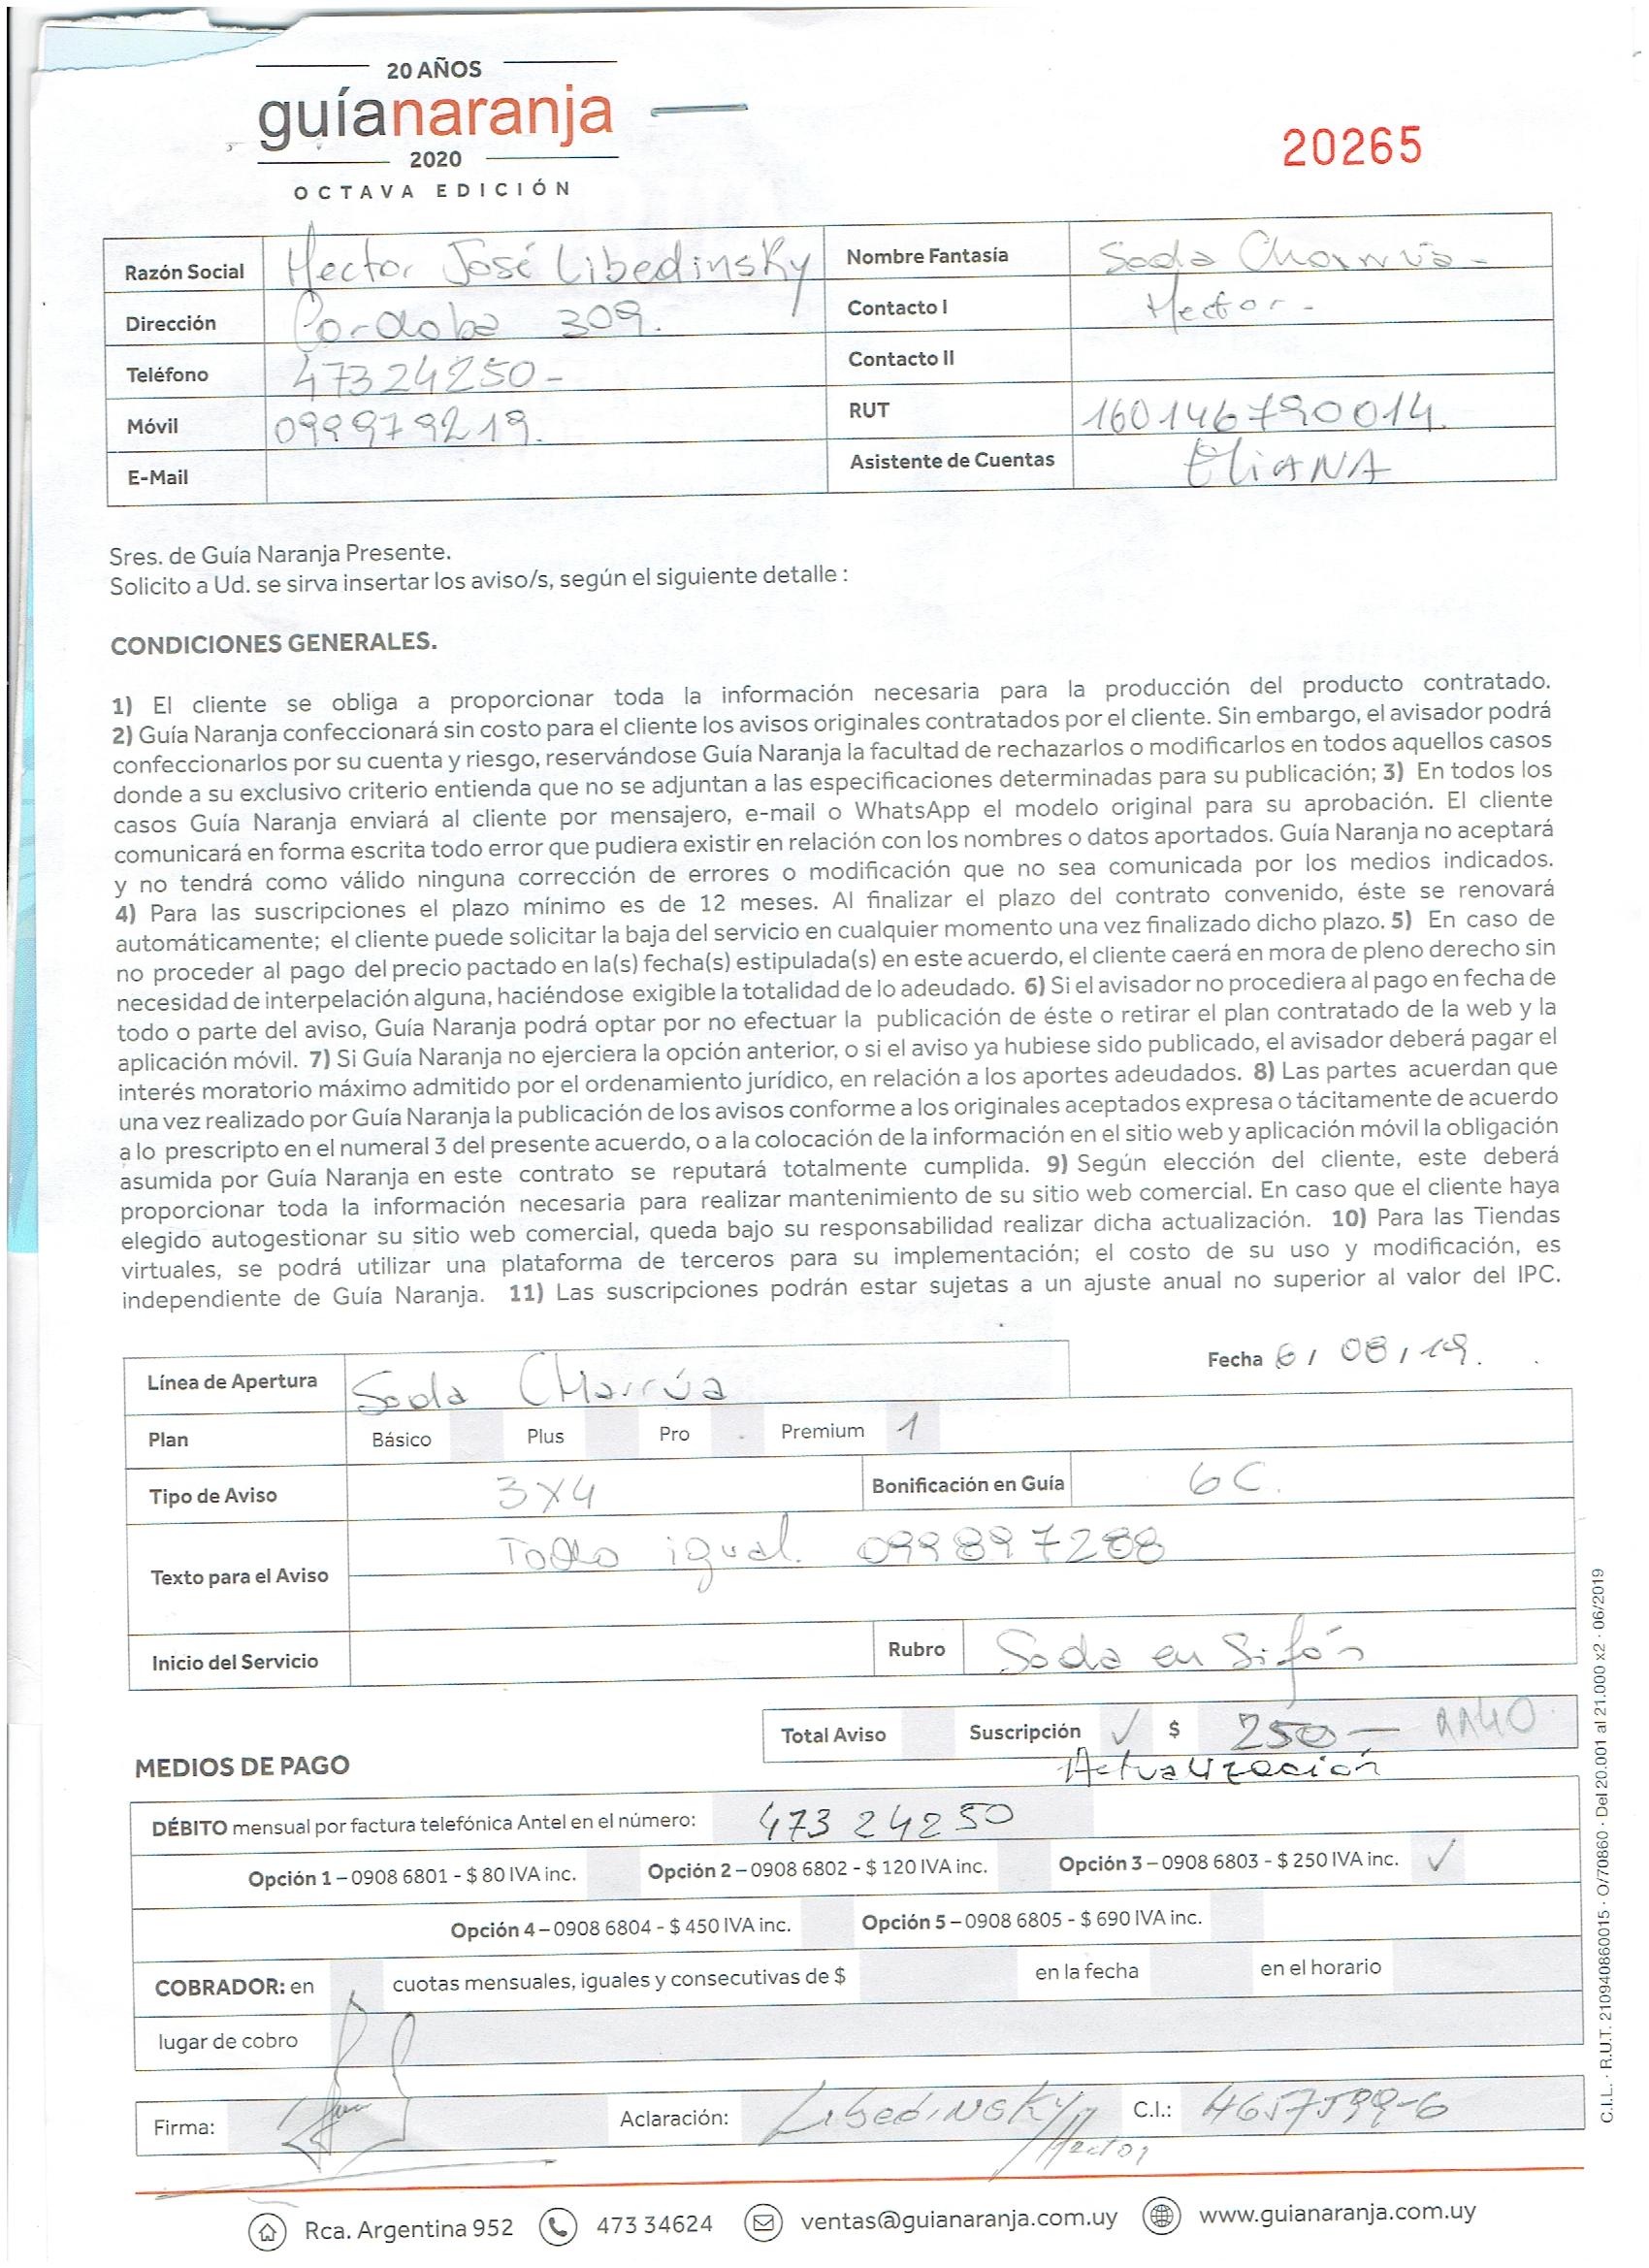 20 AÑOS
guíanaranja
2020
OCTAVA EDICIÓN
20265
Razón Social Hector José Libedinsky Nombre Fantasía Soda Charrúa -
Dirección Cordoba 309. Contacto I Hector -
Teléfono 47324250 - Contacto II
Móvil 099979219. RUT 160146790014.
E-Mail Asistente de Cuentas EliANA
Sres. de Guía Naranja Presente.
Solicito a Ud. se sirva insertar los aviso/s, según el siguiente detalle :
CONDICIONES GENERALES.
1) El cliente se obliga a proporcionar toda la información necesaria para la producción del producto contratado.
2) Guía Naranja confeccionará sin costo para el cliente los avisos originales contratados por el cliente. Sin embargo, el avisador podrá
confeccionarlos por su cuenta y riesgo, reservándose Guía Naranja la facultad de rechazarlos o modificarlos en todos aquellos casos
donde a su exclusivo criterio entienda que no se adjuntan a las especificaciones determinadas para su publicación; 3) En todos los
casos Guía Naranja enviará al cliente por mensajero, e-mail o WhatsApp el modelo original para su aprobación. El cliente
comunicará en forma escrita todo error que pudiera existir en relación con los nombres o datos aportados. Guía Naranja no aceptará
y no tendrá como válido ninguna corrección de errores o modificación que no sea comunicada por los medios indicados.
4) Para las suscripciones el plazo mínimo es de 12 meses. Al finalizar el plazo del contrato convenido, éste se renovará
automáticamente; el cliente puede solicitar la baja del servicio en cualquier momento una vez finalizado dicho plazo. 5) En caso de
no proceder al pago del precio pactado en la(s) fecha(s) estipulada(s) en este acuerdo, el cliente caerá en mora de pleno derecho sin
necesidad de interpelación alguna, haciéndose exigible la totalidad de lo adeudado. 6) Si el avisador no procediera al pago en fecha de
todo o parte del aviso, Guía Naranja podrá optar por no efectuar la publicación de éste o retirar el plan contratado de la web y la
aplicación móvil. 7) Si Guía Naranja no ejerciera la opción anterior, o si el aviso ya hubiese sido publicado, el avisador deberá pagar el
interés moratorio máximo admitido por el ordenamiento jurídico, en relación a los aportes adeudados. 8) Las partes acuerdan que
una vez realizado por Guía Naranja la publicación de los avisos conforme a los originales aceptados expresa o tácitamente de acuerdo
a lo prescripto en el numeral 3 del presente acuerdo, o a la colocación de la información en el sitio web y aplicación móvil la obligación
asumida por Guía Naranja en este contrato se reputará totalmente cumplida. 9) Según elección del cliente, este deberá
proporcionar toda la información necesaria para realizar mantenimiento de su sitio web comercial. En caso que el cliente haya
elegido autogestionar su sitio web comercial, queda bajo su responsabilidad realizar dicha actualización. 10) Para las Tiendas
virtuales, se podrá utilizar una plataforma de terceros para su implementación; el costo de su uso y modificación, es
independiente de Guía Naranja. 11) Las suscripciones podrán estar sujetas a un ajuste anual no superior al valor del IPC.
Fecha 6 / 08 / 19.
Línea de Apertura Soda CHarrúa
Plan Básico Plus Pro Premium 1
Tipo de Aviso 3x4 Bonificación en Guía 6C.
Texto para el Aviso Todo igual. 099897288
Inicio del Servicio Rubro Soda en Sifón
Total Aviso Suscripción ✓ $ 250 —
Actualización
MEDIOS DE PAGO
DÉBITO mensual por factura telefónica Antel en el número: 473 24250
Opción 1 – 0908 6801 - $ 80 IVA inc. Opción 2 – 0908 6802 - $ 120 IVA inc. Opción 3 – 0908 6803 - $ 250 IVA inc. ✓
Opción 4 – 0908 6804 - $ 450 IVA inc. Opción 5 – 0908 6805 - $ 690 IVA inc.
COBRADOR: en cuotas mensuales, iguales y consecutivas de $ en la fecha en el horario
lugar de cobro
Firma: Aclaración: Libedinsky Hector C.I.: 4657599-6
C.I.L. · R.U.T. 210940860015 · O/70860 · Del 20.001 al 21.000 x2 · 06/2019
Rca. Argentina 952 473 34624 ventas@guianaranja.com.uy www.guianaranja.com.uy